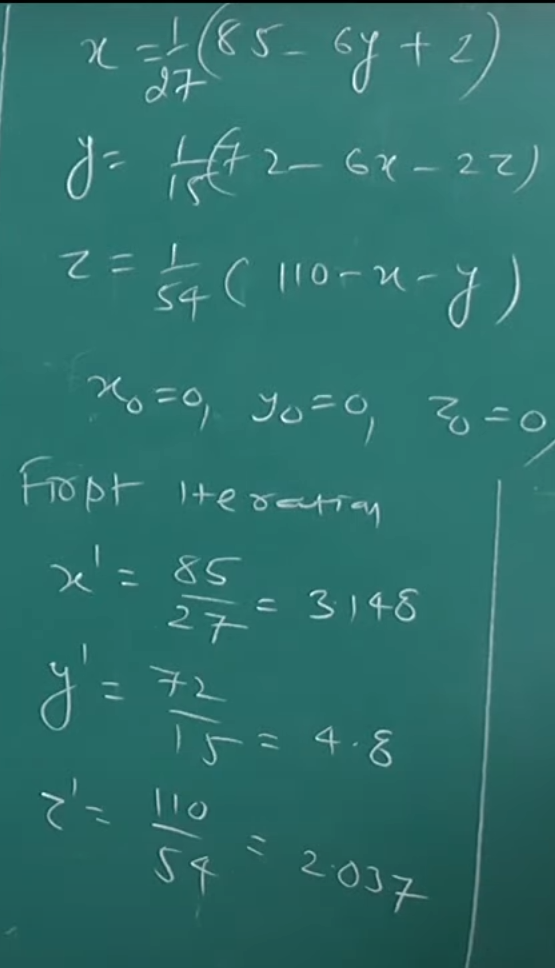 x = 1/27 (85 - 6y + z)
y = 1/15 (72 - 6x - 2z)
z = 1/54 (110 - x - y)
x₀ = 0, y₀ = 0, z₀ = 0,
First Iteration
x' = 85/27 = 3.148
y' = 72/15 = 4.8
z' = 110/54 = 2.037